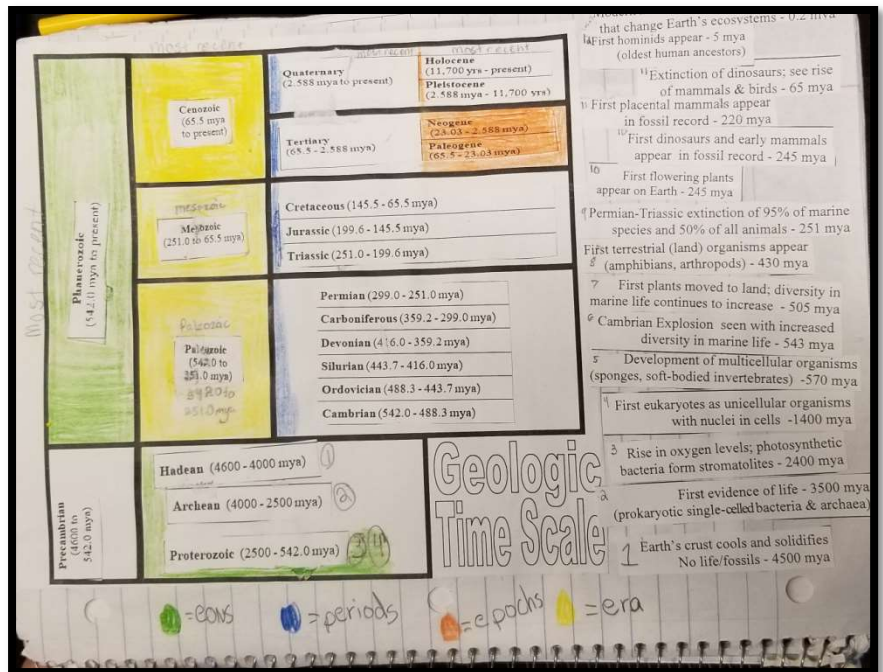 Most recent
most recent
most recent
Most recent
Phanerozoic
(542.0 mya to present)
Cenozoic
(65.5 mya
to present)
Quaternary
(2.588 mya to present)
Holocene
(11,700 yrs - present)
Pleistocene
(2.588 mya - 11,700 yrs)
Tertiary
(65.5 - 2.588 mya)
Neogene
(23.03 - 2.588 mya)
Paleogene
(65.5 - 23.03 mya)
mesozoic
Mesozoic
(251.0 to 65.5 mya)
Cretaceous (145.5 - 65.5 mya)
Jurassic (199.6 - 145.5 mya)
Triassic (251.0 - 199.6 mya)
Paleozoic
(542.0 to
251.0 mya)
251.0 mya
Permian (299.0 - 251.0 mya)
Carboniferous (359.2 - 299.0 mya)
Devonian (416.0 - 359.2 mya)
Silurian (443.7 - 416.0 mya)
Ordovician (488.3 - 443.7 mya)
Cambrian (542.0 - 488.3 mya)
Precambrian
(4600 to
542.0 mya)
Hadean (4600 - 4000 mya) 1
Archean (4000 - 2500 mya) 2
Proterozoic (2500 - 542.0 mya) 3 4
Geologic
Time Scale
that change Earth's ecosystems - 0.2 mya
First hominids appear - 5 mya
(oldest human ancestors)
11 Extinction of dinosaurs; see rise
of mammals & birds - 65 mya
11 First placental mammals appear
in fossil record - 220 mya
10 First dinosaurs and early mammals
appear in fossil record - 245 mya
10
First flowering plants
appear on Earth - 245 mya
9 Permian-Triassic extinction of 95% of marine
species and 50% of all animals - 251 mya
First terrestrial (land) organisms appear
8 (amphibians, arthropods) - 430 mya
7 First plants moved to land; diversity in
marine life continues to increase - 505 mya
6 Cambrian Explosion seen with increased
diversity in marine life - 543 mya
5 Development of multicellular organisms
(sponges, soft-bodied invertebrates) -570 mya
4 First eukaryotes as unicellular organisms
with nuclei in cells -1400 mya
3 Rise in oxygen levels; photosynthetic
bacteria form stromatolites - 2400 mya
2 First evidence of life - 3500 mya
(prokaryotic single-celled bacteria & archaea)
1 Earth's crust cools and solidifies
No life/fossils - 4500 mya
=eons
=periods
=epochs
=era